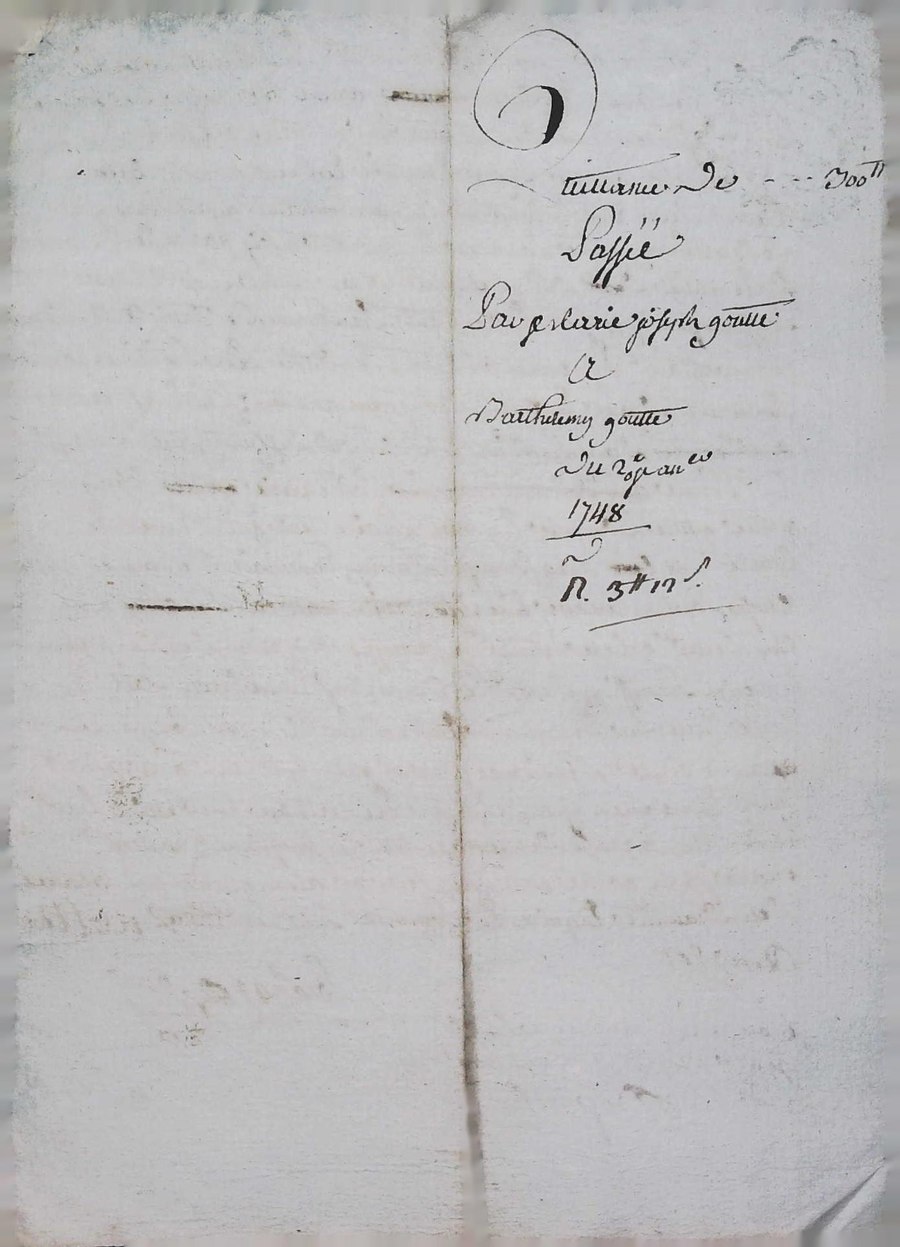 Quittance De - - - 300ᵗᵗ
Passée
Par Marie joseph goutte
A
Barthelemy goutte
Du 29e janer
1748
R. 3ᵗᵗ 12ˢ.